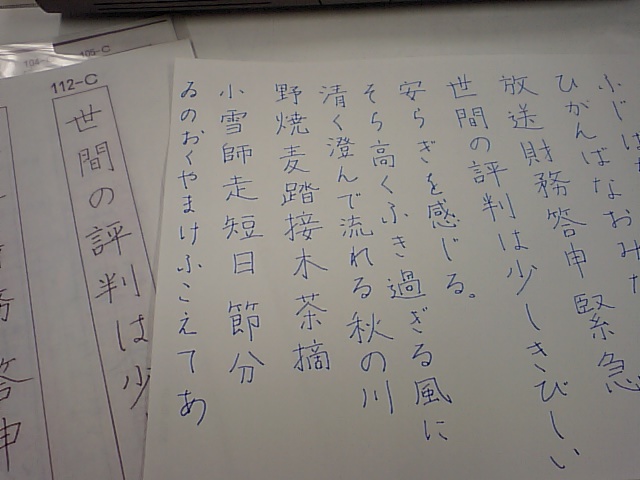 ふじばか
ひがんばなおみな
放送財務答申 緊急
世間の評判は少しきびしい
安らぎを感じる。
そら高くふき過ぎる風に
清く澄んで流れる秋の川
野焼麦踏接木茶摘
小雪師走短日 節分
ゐのおくやまけふこえてあ
104-C
105-C
112-C
世間の評判は少
務答申